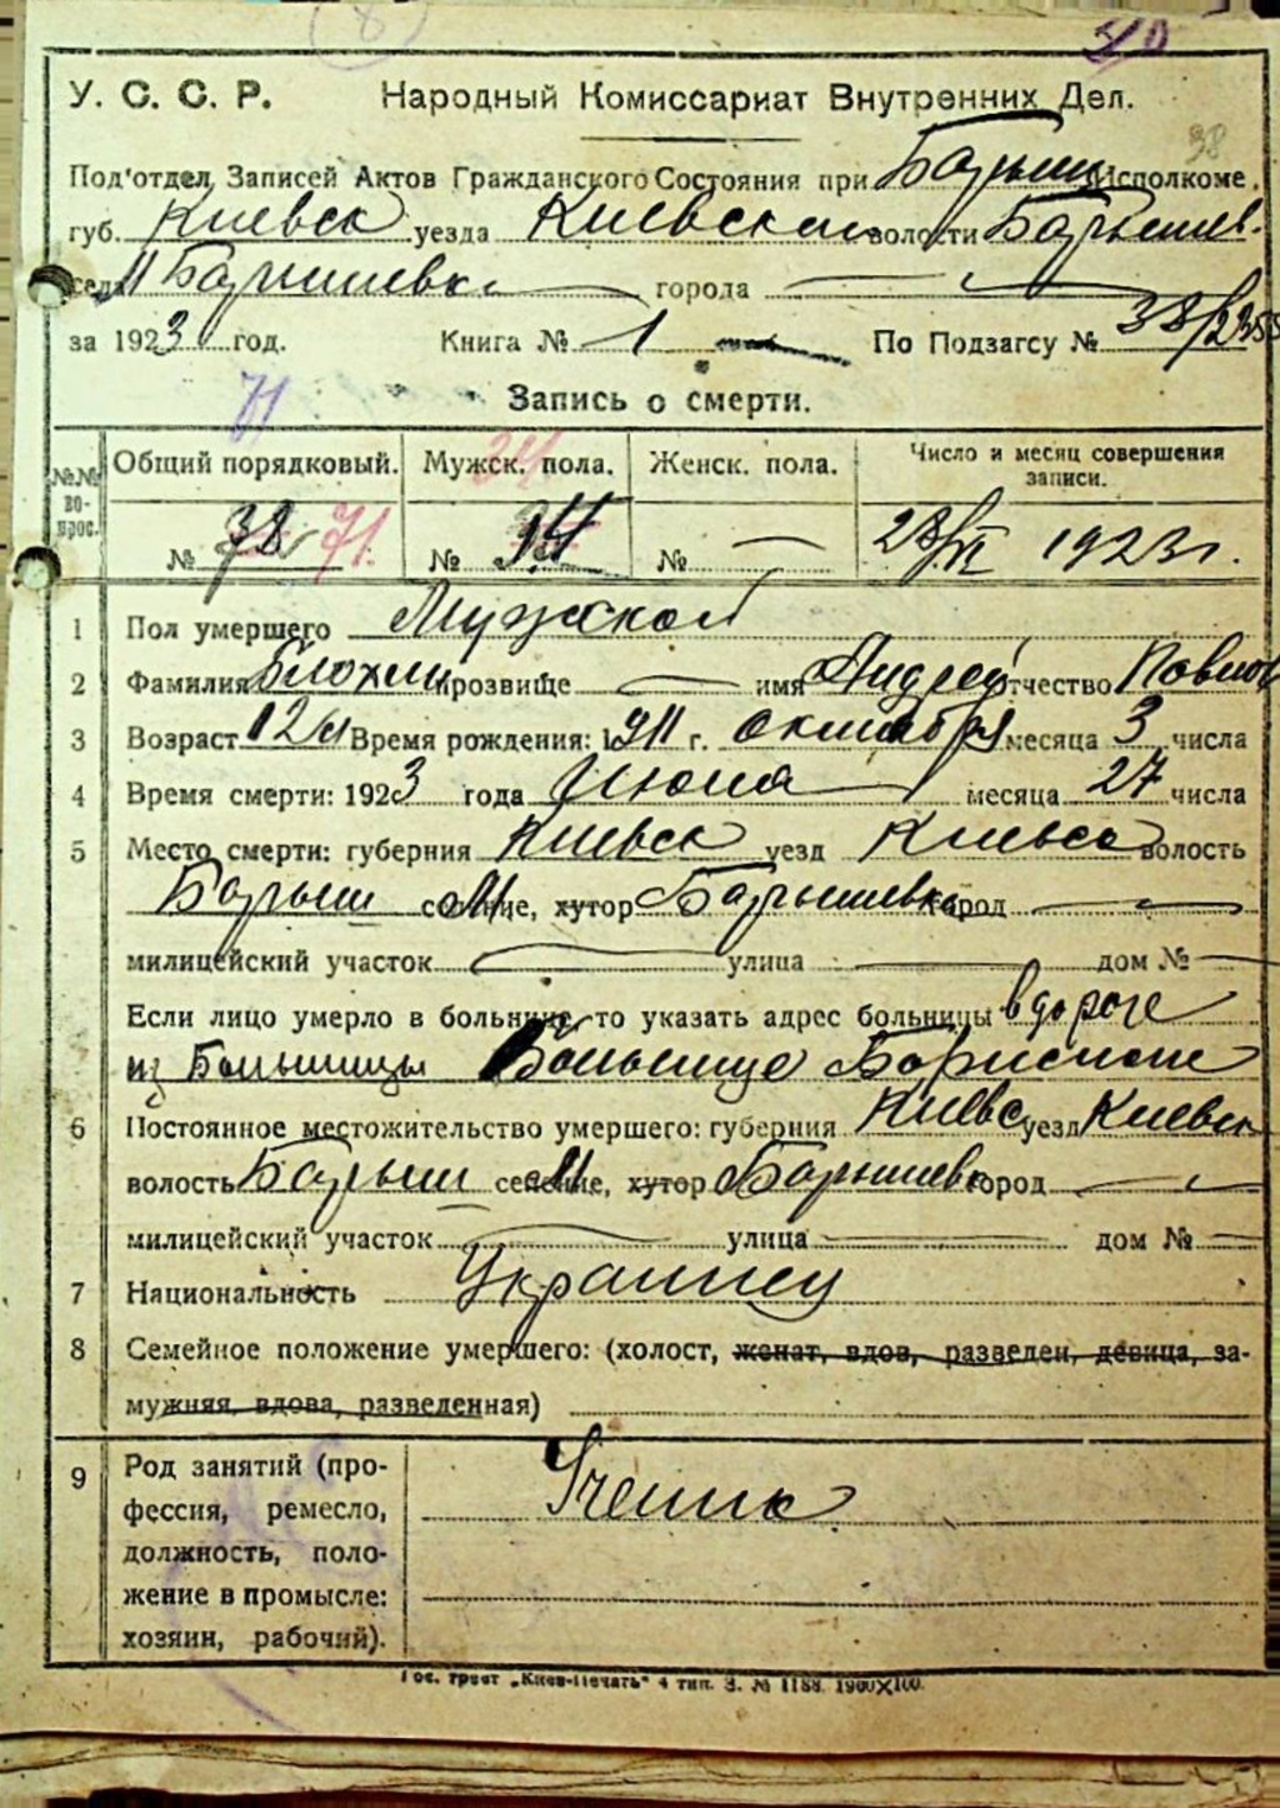 У. С. С. Р. Народный Комиссариат Внутренних Дел.
38
Под'отдел Записей Актов Гражданского Состояния при Барыш Исполкоме.
губ. Киевск уезда Киевской волости Барышев.
села М Барышевка города —
за 1923 год. Книга № 1 По Подзагсу №
71
Запись о смерти.
№№ вопрос. Общий порядковый. Мужск. пола. Женск. пола. Число и месяц совершения записи.
№ 72 71. № 34 № — 28/VI 1923 г.
1 Пол умершего Мужской
2 Фамилия Блохин прозвище — имя Андрей отчество Павлов
3 Возраст 12 Время рождения: 1911 г. октября месяца 3 числа
4 Время смерти: 1923 года Июня месяца 27 числа
5 Место смерти: губерния Киевск уезд Киевск волость
Барыш селение, хутор Барышевка город —
милицейский участок — улица — дом № —
Если лицо умерло в больнице, то указать адрес больницы в дороге
из Больницы Больнице
6 Постоянное местожительство умершего: губерния Киевс уезд Киевск
волость Барыш селение, хутор Барышевка город —
милицейский участок — улица — дом № —
7 Национальность Украинец
8 Семейное положение умершего: (холост, женат, вдов, разведен, девица, за-
мужняя, вдова, разведенная)
9 Род занятий (про-
фессия, ремесло, Ученик
должность, поло-
жение в промысле:
хозяин, рабочий).
Гос. трест „Киев-Печать" 4 тип. З. № 1188. 1900×100.